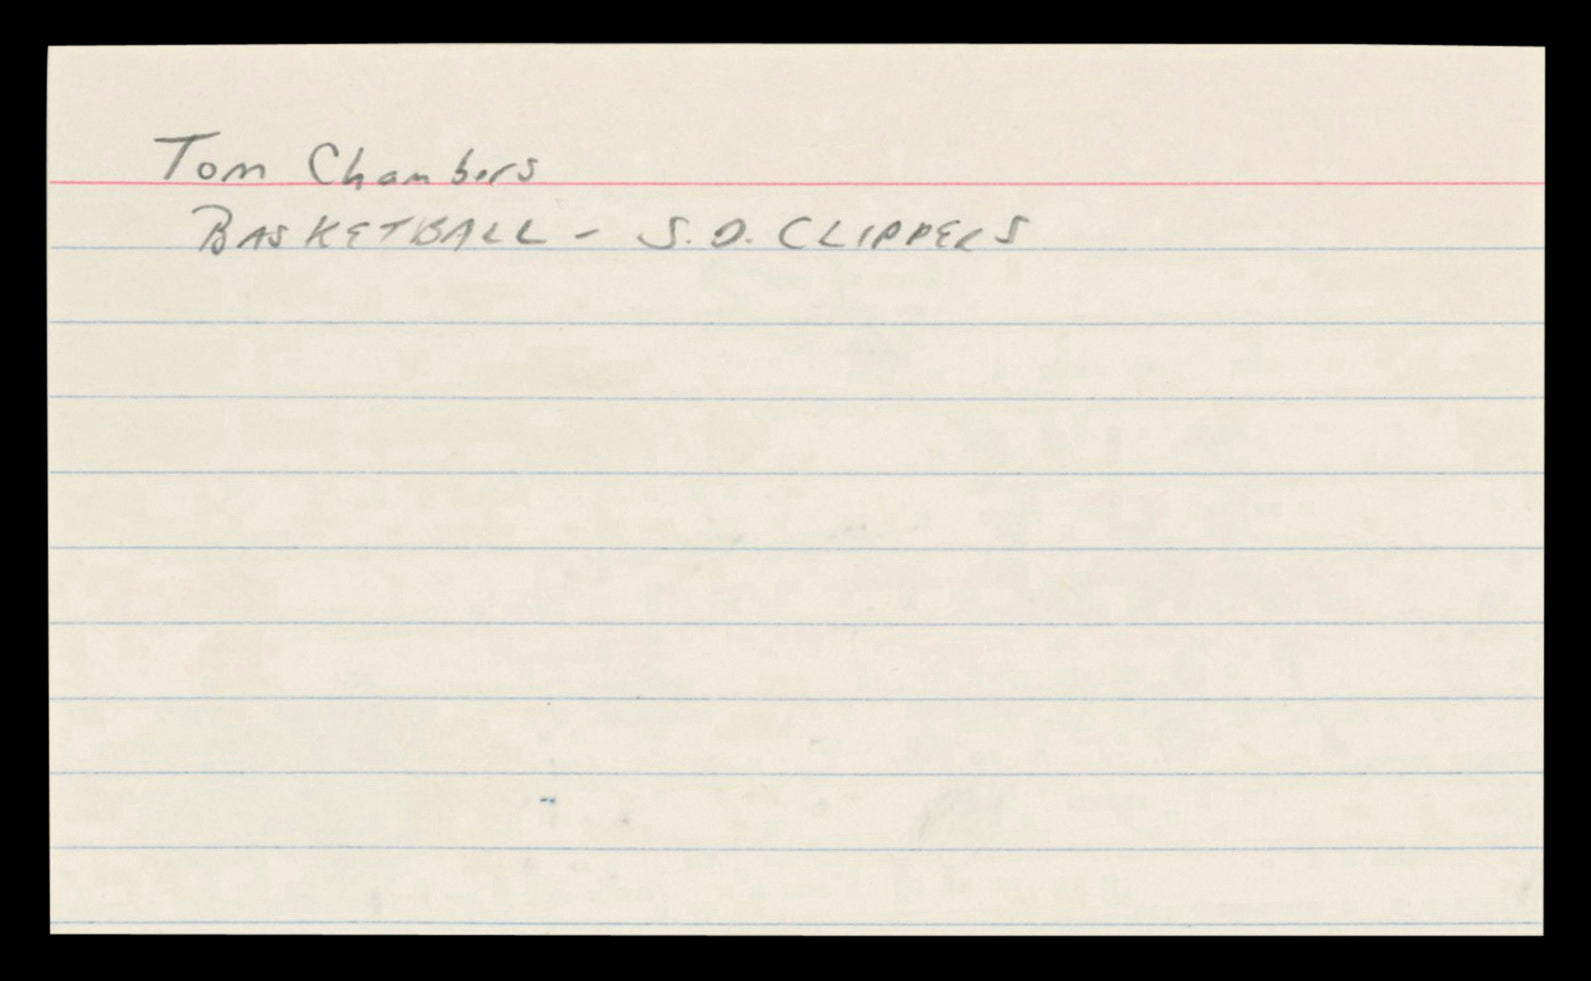 Tom Chambers
BASKETBALL - S.D. CLIPPERS